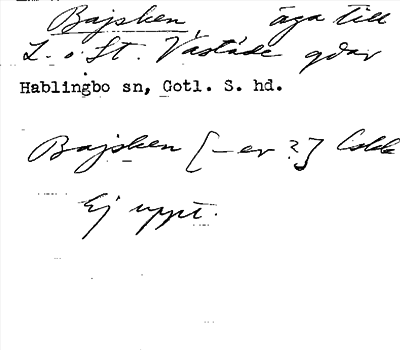 Bajsken äga till
L. o St. Västäde gdar
Hablingbo sn, Gotl. S. hd.
Bajsken [-er?]
Ej uppt.